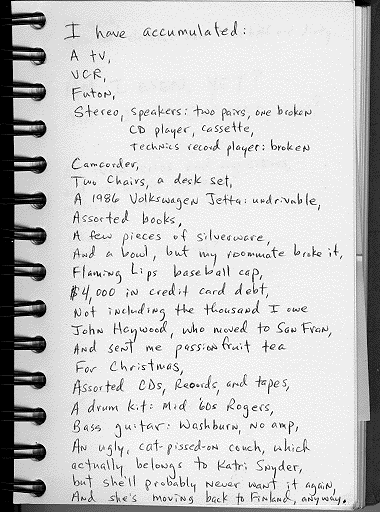 I have accumulated:
A TV,
VCR,
Futon,
Stereo, speakers: two pairs, one broken
CD player, cassette,
Technics record player: broken
Camcorder,
Two Chairs, a desk set,
A 1986 Volkswagen Jetta: undrivable,
Assorted books,
A few pieces of silverware,
And a bowl, but my roommate broke it,
Flaming Lips baseball cap,
$4,000 in credit card debt,
Not including the thousand I owe
John Haywood, who moved to San Fran,
And sent me passionfruit tea
For Christmas,
Assorted CDs, Records, and tapes,
A drum kit: Mid '60s Rogers,
Bass guitar: Washburn, no amp,
An ugly, cat-pissed-on couch, which
actually belongs to Katri Snyder,
but she'll probably never want it again,
And she's moving back to Finland, anyway.